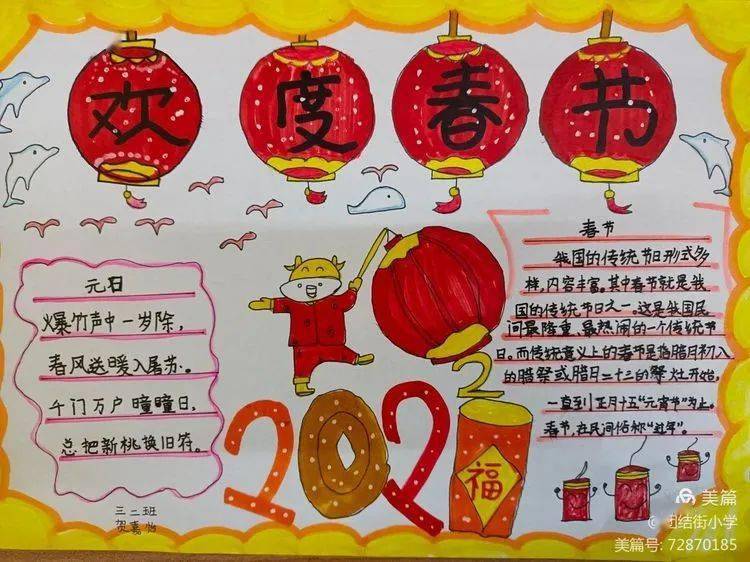 欢度春节
元日
爆竹声中一岁除,
春风送暖入屠苏。
千门万户曈曈日,
总把新桃换旧符。
三二班
贺嘉怡
春节
我国的传统节日形式多
样,内容丰富。其中春节就是我
国的传统节日之一。这是我国民
间最隆重、最热闹的一个传统节
日。而传统意义上的春节是指腊月初八
的腊祭或腊月二十三的祭灶开始,
一直到正月十五“元宵节”为止。
春节,在民间俗称“过年”。
2021
福
美篇
©团结街小学
美篇号: 72870185